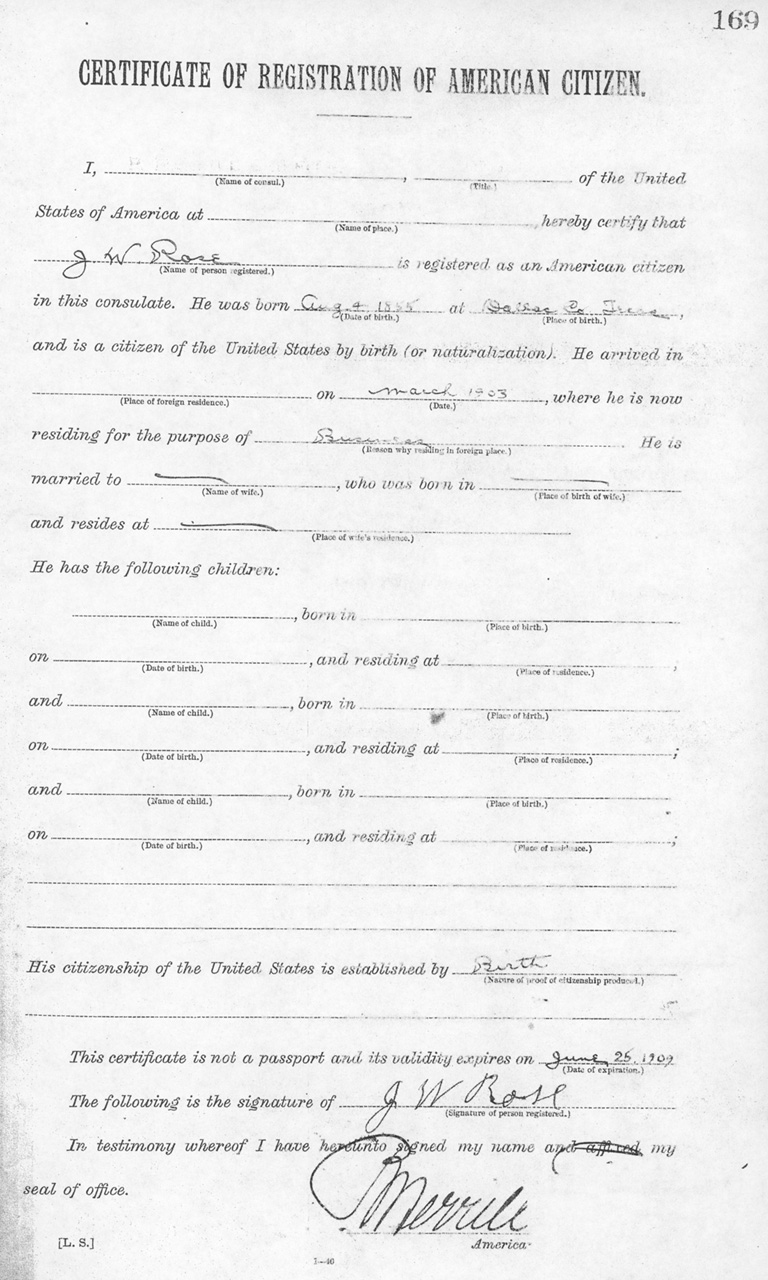 169
CERTIFICATE OF REGISTRATION OF AMERICAN CITIZEN.
I, , of the United
(Name of consul.) (Title.)
States of America at , hereby certify that
(Name of place.)
J W Rose is registered as an American citizen
(Name of person registered.)
in this consulate. He was born Aug 4 1855 at Dallas Co Texas,
(Date of birth.) (Place of birth.)
and is a citizen of the United States by birth (or naturalization). He arrived in
on march 1903, where he is now
(Place of foreign residence.) (Date.)
residing for the purpose of Business He is
(Reason why residing in foreign place.)
married to , who was born in
(Name of wife.) (Place of birth of wife.)
and resides at
(Place of wife's residence.)
He has the following children:
, born in
(Name of child.) (Place of birth.)
on , and residing at ;
(Date of birth.) (Place of residence.)
and , born in
(Name of child.) (Place of birth.)
on , and residing at ;
(Date of birth.) (Place of residence.)
and , born in
(Name of child.) (Place of birth.)
on , and residing at ;
(Date of birth.) (Place of residence.)
His citizenship of the United States is established by Birth
(Nature of proof of citizenship produced.)
This certificate is not a passport and its validity expires on June 25, 1909
(Date of expiration.)
The following is the signature of J W Rose
(Signature of person registered.)
In testimony whereof I have hereunto signed my name and affixed my
seal of office.
Merrill
[L. S.] America
1—46